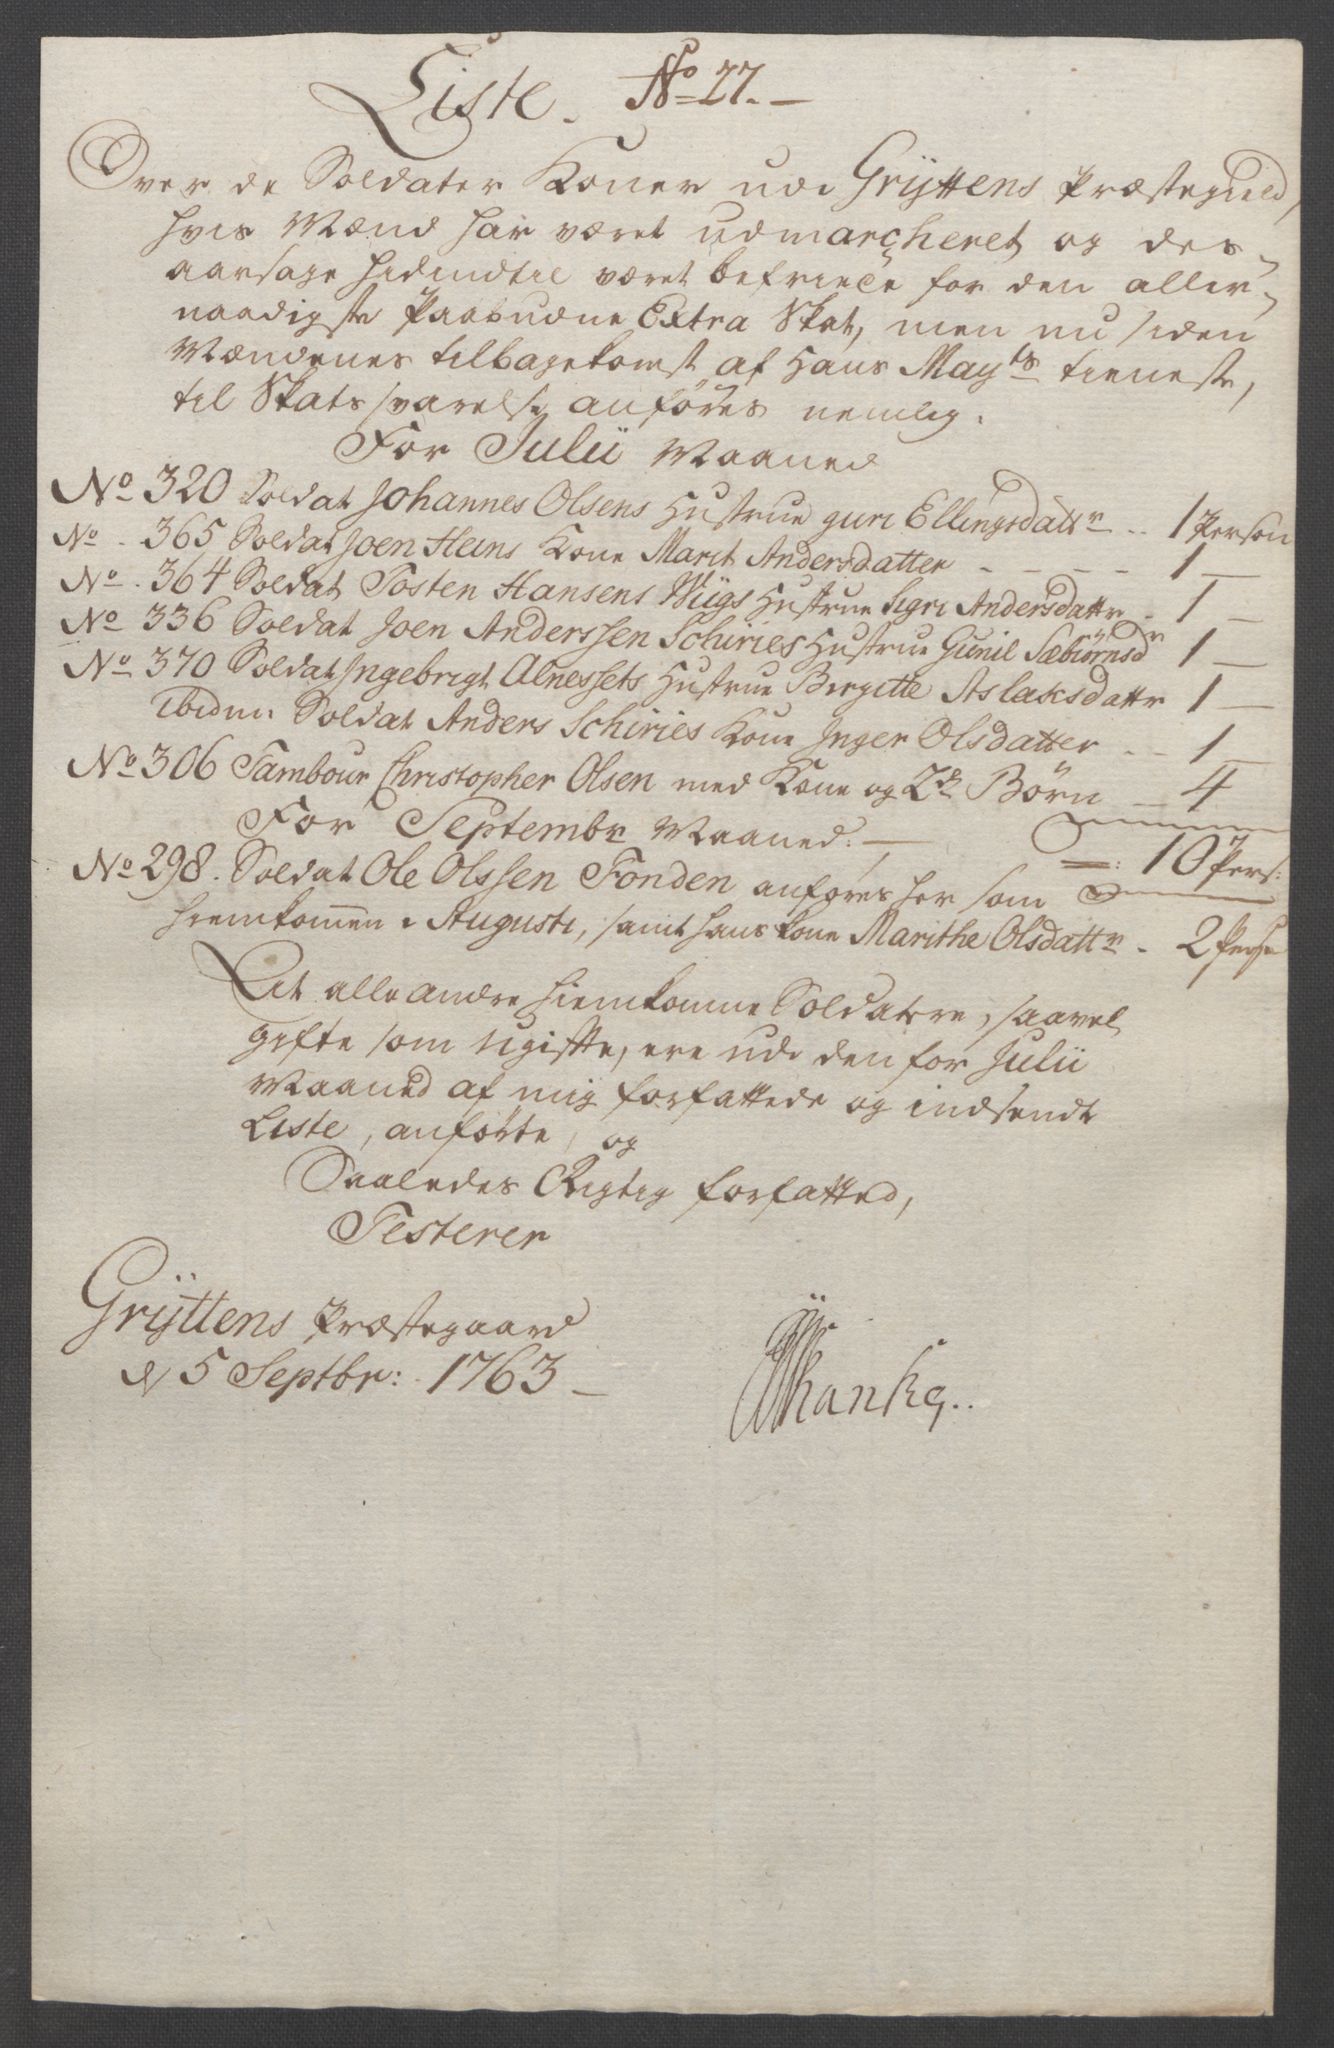 Liste. No 27.
Over de Soldater Koner udi Grÿttens Præstegield,
hvis Mænd har været udmarcheret og des-
aarsage hidindtil været befriede for den aller-
naadigste Paabudne Extra Skat, men nu siden
Mændenes tilbagekomst af Hans Mayts tieneste,
til Skats svarelse anføres nemlig.
For Julii Maaned
No 320 Soldat Johannes Olsens Hustrue guri Ellingsdattr .. 1 Person
No . 365 Soldat Joen Heins Kone Marit Andersdatter - - - - 1 —
No . 364 Soldat Tosten Hansens Wiigs Hustrue Sigri Andersdattr - 1 —
No 336 Soldat Joen Anderssen Schiries Hustrue Gunil Sæbiörnsdr 1 —
No 370 Soldat Ingebrigt Alnessets Hustrue Birgitte Aslaksdattr 1 —
ibidm. Soldat Anders Schiries Kone Inger Olsdatter - - 1 —
No 306 Tambour Christopher Olsen med Kone og 2de Börn — 4
For Septembr Maaned. — =: 10 Pers:
No 298. Soldat Ole Olssen Fonden anføres her som
hiemkommen i Augusti, samt hans kone Marithe Olsdattr - 2 Pers
At alle andre hiemkomne Soldatere, saavel
gifte som ugifte, ere udi den for Julii
Maaned af mig forfattede og indsendte
Liste, anførte, og
Saaledes Rigtig forfatted,
Testerer
Grÿttens Præstegaard
d 5 Septbr: 1763 —